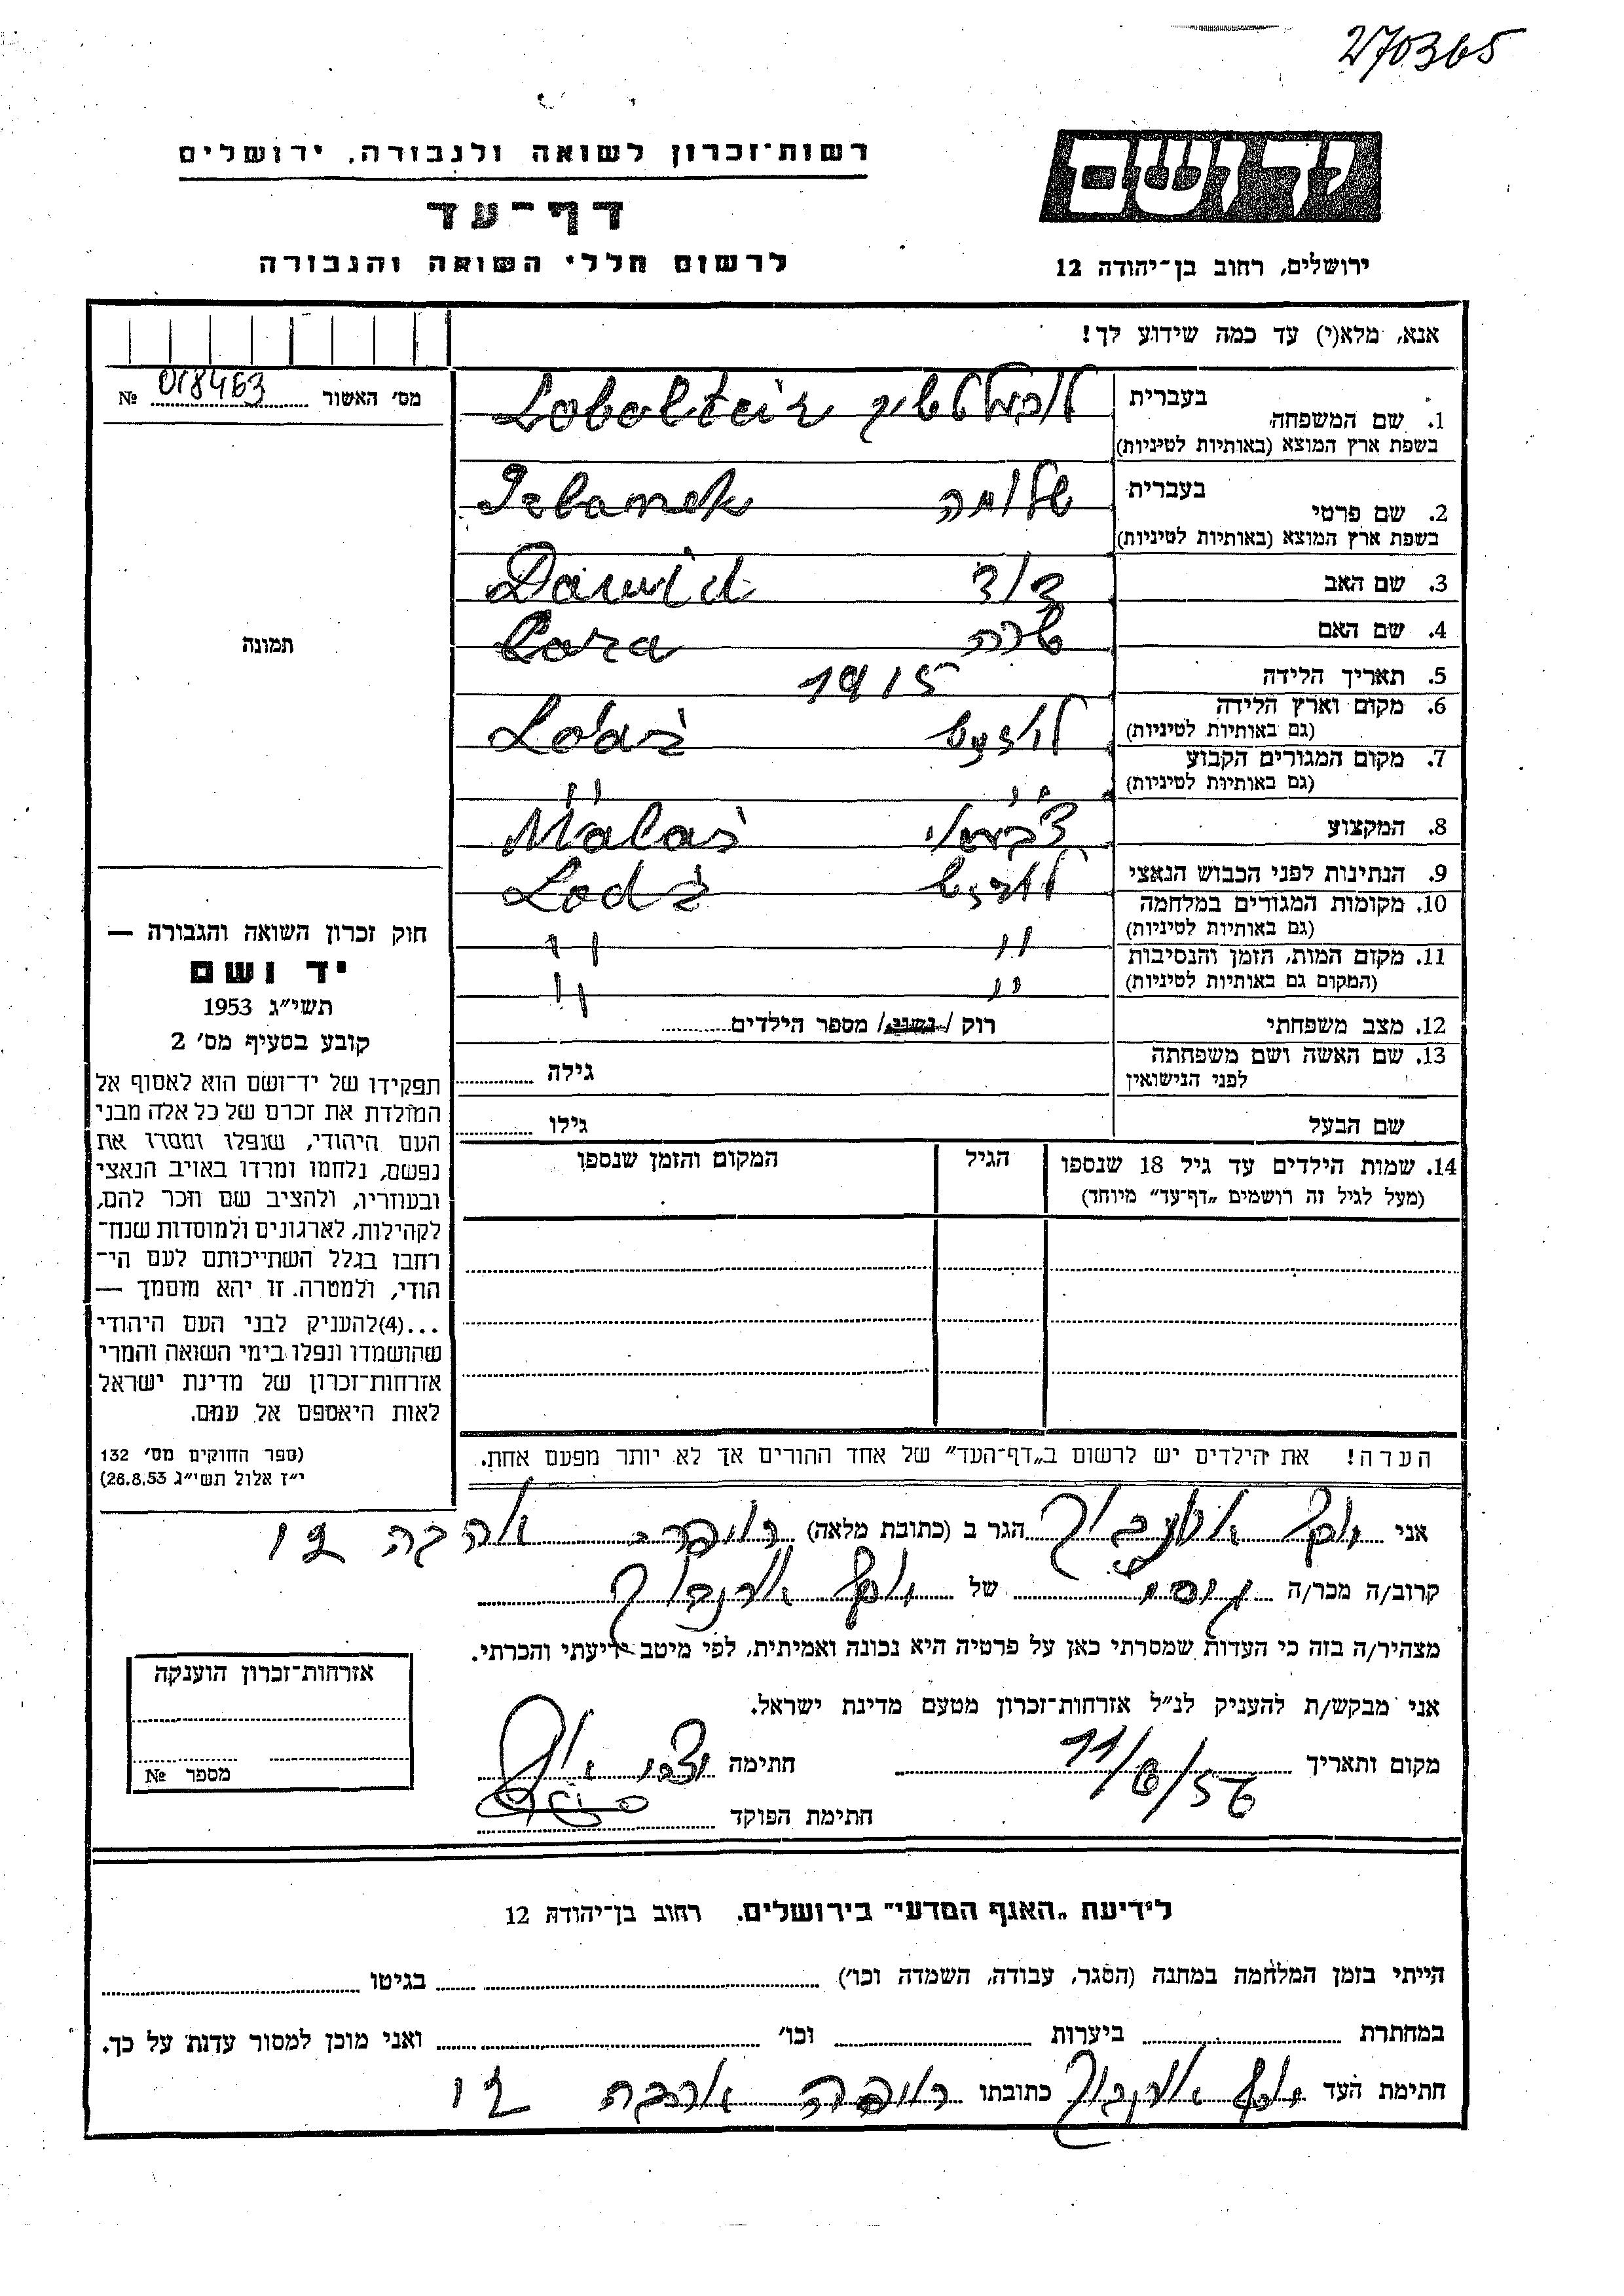 270365
רשות־זכרון לשואה ולגבורה, ירושלים
ידושם
דף־עד
לרשום חללי השואה והגבורה
ירושלים, רחוב בן־יהודה 12
אנא, מלא(י) עד כמה שידוע לך!
מס׳ האשור 018463 №
1. שם המשפחה
בעברית
בשפת ארץ המוצא (באותיות לטיניות)
2. שם פרטי
בעברית
שלומה
בשפת ארץ המוצא (באותיות לטיניות)
3. שם האב
דוד Dawid
4. שם האם
שרה
5. תאריך הלידה
1915
6. מקום וארץ הלידה
(גם באותיות לטיניות)
Lodż
7. מקום המגורים הקבוע
(גם באותיות לטיניות)
״ ״
8. המקצוע
9. הנתינות לפני הכבוש הנאצי
Lodż
10. מקומות המגורים במלחמה
(גם באותיות לטיניות)
״ ״
11. מקום המות, הזמן והנסיבות
(המקום גם באותיות לטיניות)
״ ״
12. מצב משפחתי
רוק / נשוי / מספר הילדים
13. שם האשה ושם משפחתה
לפני הנישואין
גילה
שם הבעל
גילו
14. שמות הילדים עד גיל 18 שנספו
(מעל לגיל זה רושמים „דף־עד״ מיוחד)
הגיל
המקום והזמן שנספו
הערה! את הילדים יש לרשום ב„דף־העד״ של אחד ההורים אך לא יותר מפעם אחת.
תמונה
חוק זכרון השואה והגבורה —
יד ושם
תשי״ג 1953
קובע בסעיף מס׳ 2
תפקידו של יד־ושם הוא לאסוף אל
המולדת את זכרם של כל אלה מבני
העם היהודי, שנפלו ומסרו את
נפשם, נלחמו ומרדו באויב הנאצי
ובעוזריו, ולהציב שם וזכר להם,
לקהילות, לארגונים ולמוסדות שנח־
רחבו בגלל השתייכותם לעם הי־
הודי, ולמטרה. זו יהא מוסמך —
...(4)להעניק לבני העם היהודי
שהושמדו ונפלו בימי השואה והמרי
אזרחות־זכרון של מדינת ישראל
לאות היאספם אל עמם.
(ספר החוקים מס׳ 132
י״ז אלול תשי״ג 28.8.53)
אני
הגר ב (כתובת מלאה)
קרוב/ה מכר/ה
של
מצהיר/ה בזה כי העדות שמסרתי כאן על פרטיה היא נכונה ואמיתית, לפי מיטב ידיעתי והכרתי.
אני מבקש/ת להעניק לנ״ל אזרחות־זכרון מטעם מדינת ישראל.
מקום ותאריך 11/6/56 חתימה
חתימת הפוקד
אזרחות־זכרון הוענקה
מספר №
לידיעת „האגף המדעי״ בירושלים. רחוב בן־יהודה 12
הייתי בזמן המלחמה במחנה (הסגר, עבודה, השמדה וכו׳) בגיטו
במחתרת ביערות וכו׳ ואני מוכן למסור עדות על כך.
חתימת העד כתובתו